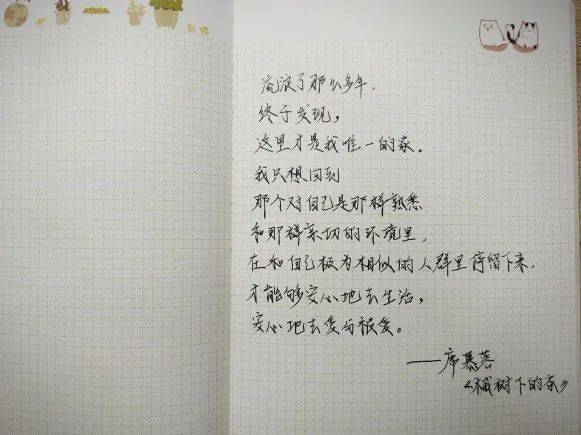 流浪了那么多年,
终于发现,
这里才是我唯一的家。
我只想回到
那个对自己是那样熟悉
和那样亲切的环境里,
在和自己极为相似的人群里停留下来,
才能够安心地去生活,
安心地去爱与被爱。
——席慕蓉
《槭树下的家》